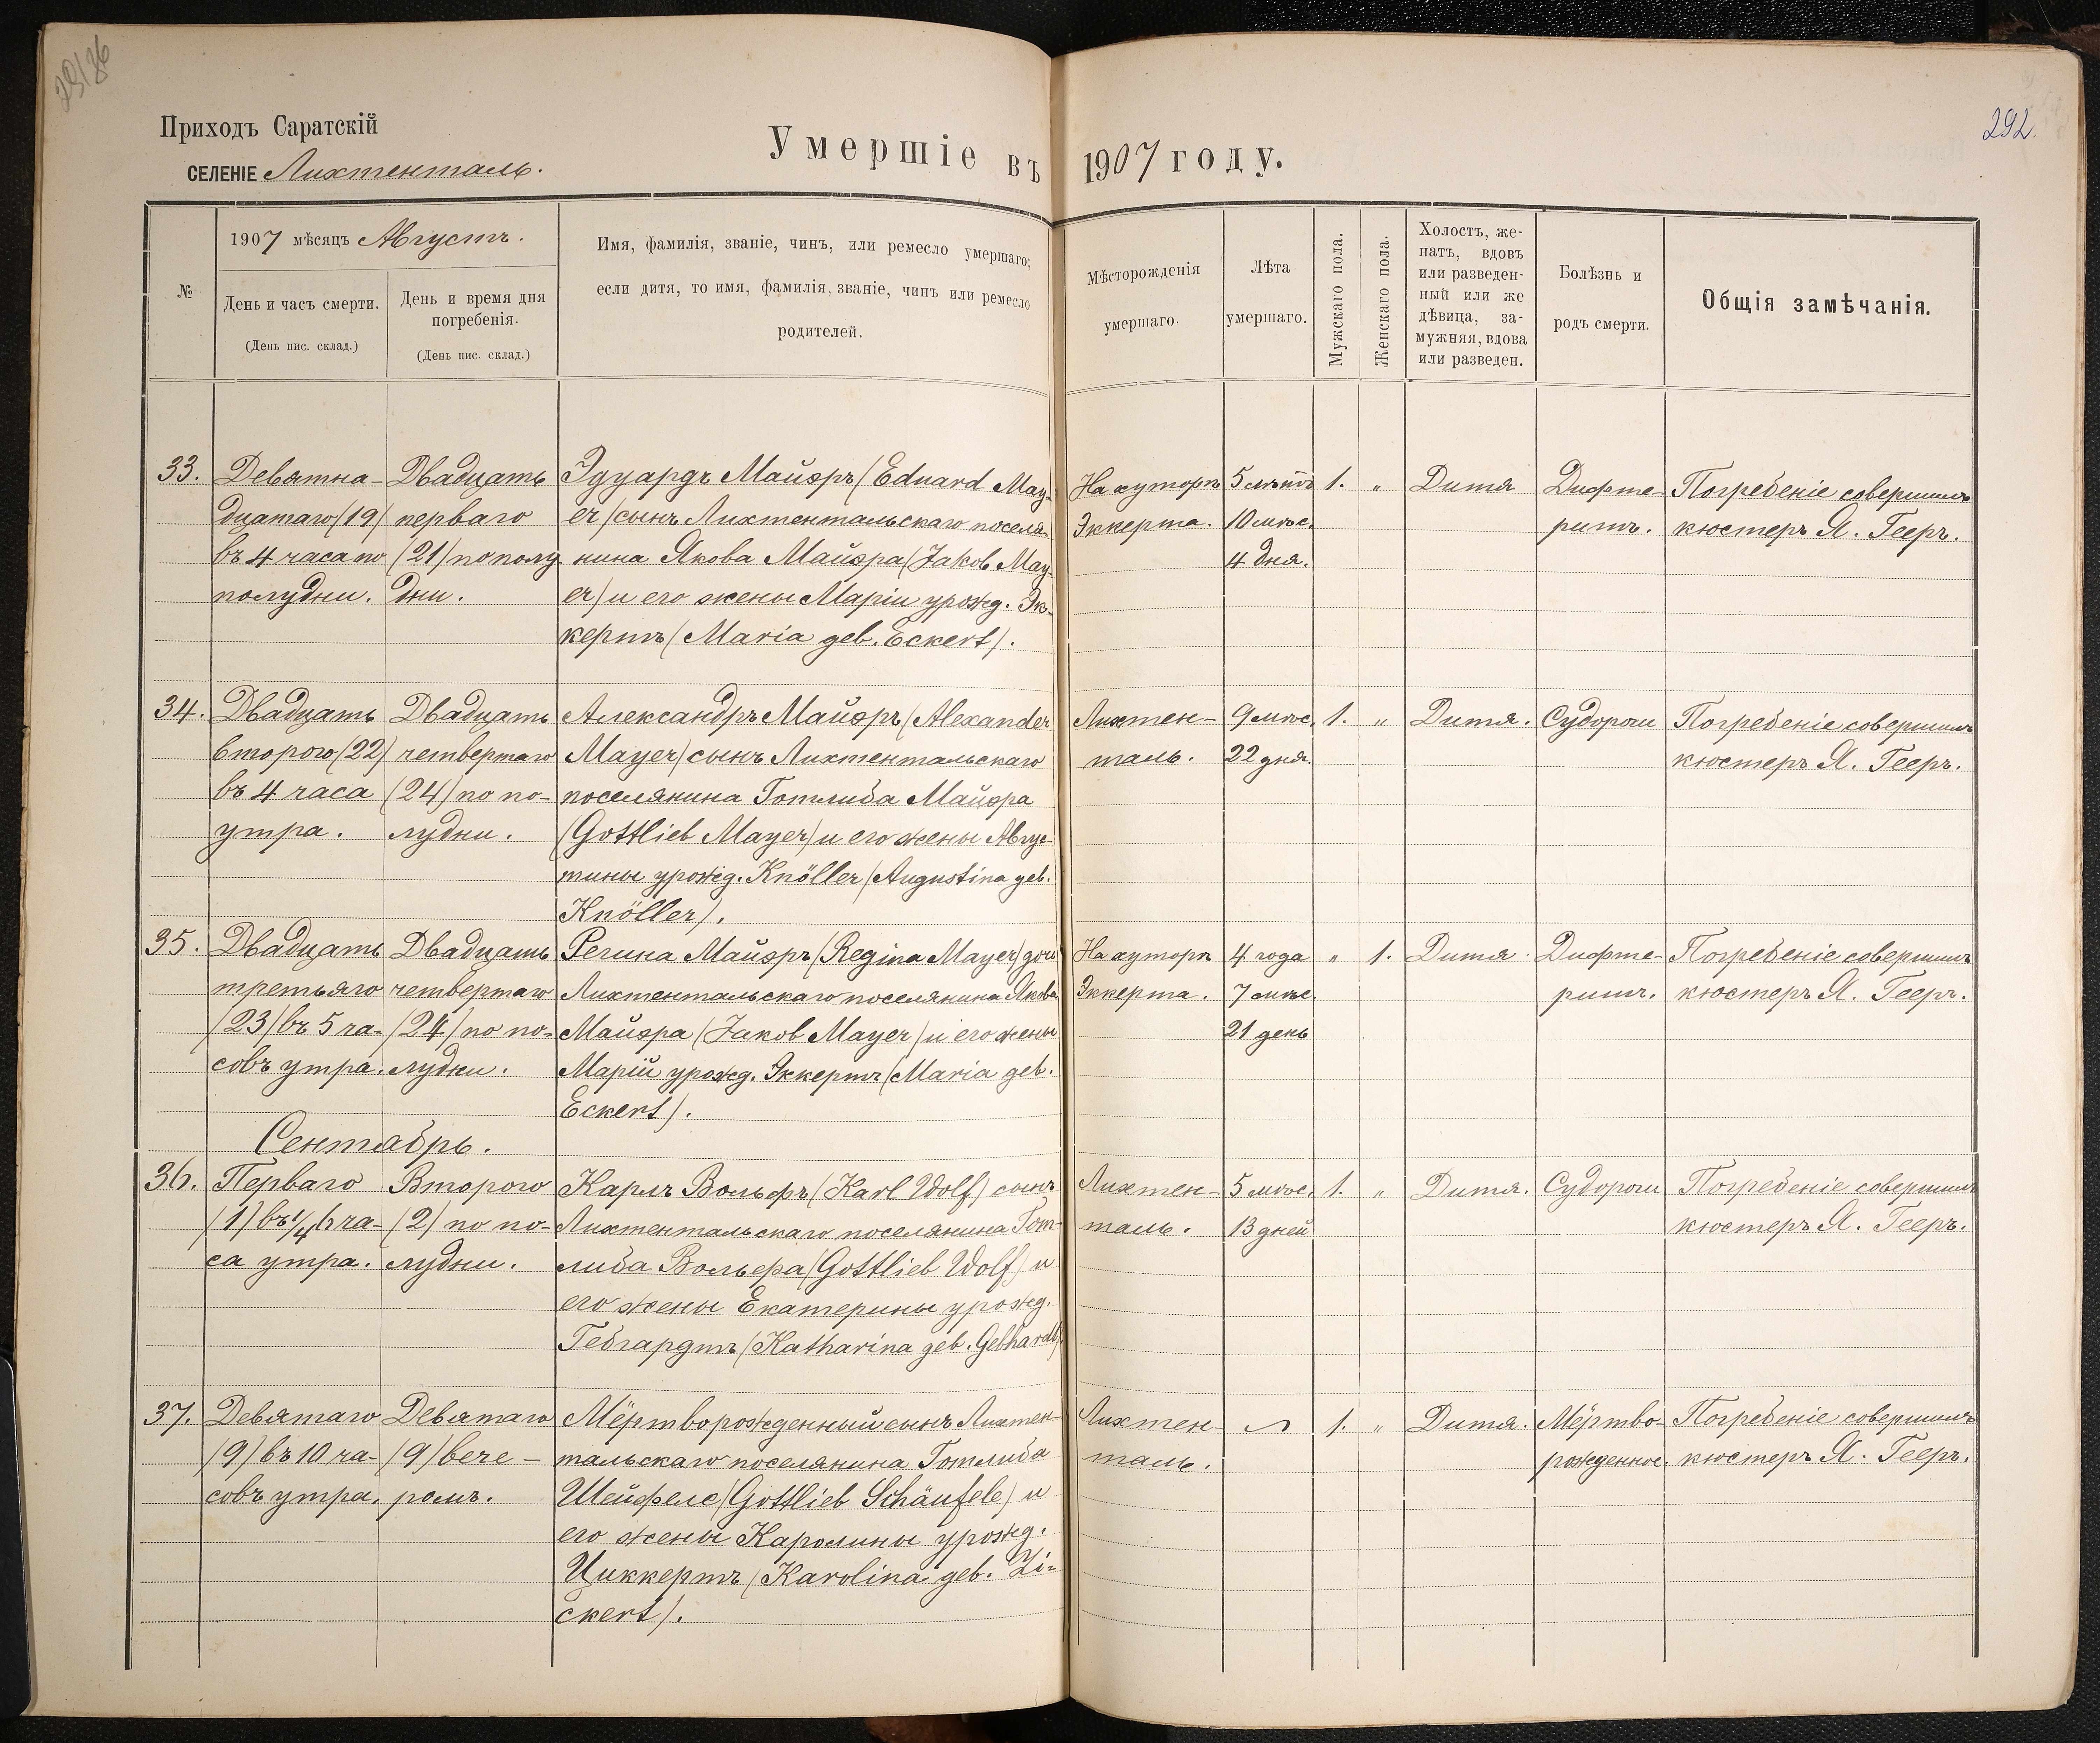 29/86
292.
Приходъ Саратскій
СЕЛЕНІЕ Лихтенталь.
Умершіе въ 1907 году.
№
1907 мѣсяцъ Августъ.
День и часъ смерти.
(День пис. склад.)
День и время дня
погребенія.
(День пис. склад.)
Имя, фамилія, званіе, чинъ, или ремесло умершаго;
если дитя, то имя, фамилія, званіе, чинъ или ремесло
родителей.
Мѣсторожденія
умершаго.
Лѣта
умершаго.
Мужскаго пола.
Женскаго пола.
Холостъ, же-
натъ, вдовъ
или разведен-
ный или же
дѣвица, за-
мужняя, вдова
или разведен.
Болѣзнь и
родъ смерти.
Общія замѣчанія.
33.
Девятна-
дцатаго (19)
въ 4 часа по
полудни.
Двадцать
перваго
(21) по полу
дни.
Эдуардъ Майэръ (Eduard May-
er) сынъ Лихтентальскаго поселя-
нина Якова Майэра (Jakob May-
er) и его жены Маріи урожд. Эк-
кертъ (Maria geb. Eckert).
На хуторѣ
Эккерта.
5 лѣтъ
10 мѣс.
4 дня.
1.
"
Дитя
Дифте-
ритъ.
Погребеніе совершилъ
кюстеръ Я. Гееръ.
34.
Двадцать
второго (22)
въ 4 часа
утра.
Двадцать
четвертаго
(24) по по-
лудни.
Александръ Майэръ (Alexander
Mayer) сынъ Лихтентальскаго
поселянина Готлиба Майэра
(Gottlieb Mayer) и его жены Авгус-
тины урожд. Knöller (Augustina geb.
Knöller).
Лихтен-
таль.
9 мѣс.
22 дня.
1.
"
Дитя.
Судороги
Погребеніе совершилъ
кюстеръ Я. Гееръ.
35.
Двадцать
третьяго
(23) въ 5 ча-
совъ утра.
Двадцать
четвертаго
(24) по по-
лудни.
Регина Майэръ (Regina Mayer) дочь
Лихтентальскаго поселянина Якова
Майэра (Jakob Mayer) и его жены
Маріи урожд. Эккертъ (Maria geb.
Eckert).
На хуторѣ
Эккерта.
4 года
7 мѣс.
21 день
"
1.
Дитя
Дифте-
ритъ.
Погребеніе совершилъ
кюстеръ Я. Гееръ.
Сентябрь.
36.
Перваго
(1) въ 1/4 ча-
са утра.
Второго
(2) по по-
лудни.
Карлъ Вольфъ (Karl Wolf) сынъ
Лихтентальскаго поселянина Гот-
либа Вольфа (Gottlieb Wolf) и
его жены Екатерины урожд.
Гебгардтъ (Katharina geb. Gebhardt)
Лихтен-
таль.
5 мѣс.
13 дней
1.
"
Дитя.
Судороги
Погребеніе совершилъ
кюстеръ Я. Гееръ.
37.
Девятаго
(9) въ 10 ча-
совъ утра.
Девятаго
(9) вече-
ромъ.
Мёртворожденный сынъ Лихтен-
тальскаго поселянина Готлиба
Шейфеле (Gottlieb Schäufele) и
его жены Каролины урожд.
Циккертъ (Karolina geb. Zi-
ckert).
Лихтен-
таль.
1.
"
Дитя.
Мёртво-
рожденное.
Погребеніе совершилъ
кюстеръ Я. Гееръ.